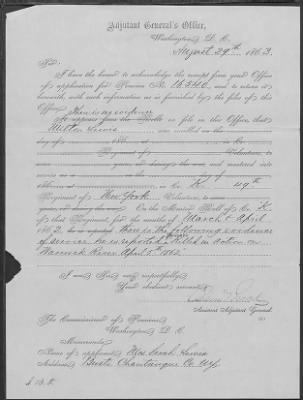 Adjutant General's Office,
Washington, D. C.
August 29th, 1863.
Sir:
I have the honor to acknowledge the receipt from your Office
of application for Pension No. and to return it
herewith, with such information as is furnished by the files of this
Office.
It appears from the Rolls on file in this Office that
Milton Lewis was enrolled on the
day of 186
Regiment of Volunteers, to
serve years, or during the war, and mustered into
service as a on the day of
186 at , in Co. K. 49th
Regiment of New York Volunteers, to serve
years, or during the war. On the Muster Roll of Co. K
of that Regiment, for the months of March & April
1862, he is reported
of service he is reported killed in action on
Warwick River April 5" 1862.
I am Sir, very respectfully,
Your obedient servant,
Assistant Adjutant General.
The Commissioner of Pensions,
Washington, D. C.
Memoranda.
Name of applicant, Mrs Sarah Lewis
Address, Busti, Chautauque Co NY.